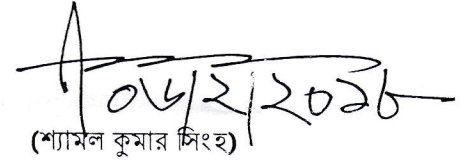 ০৬/২/২০১৮
(শ্যামল কুমার সিংহ)